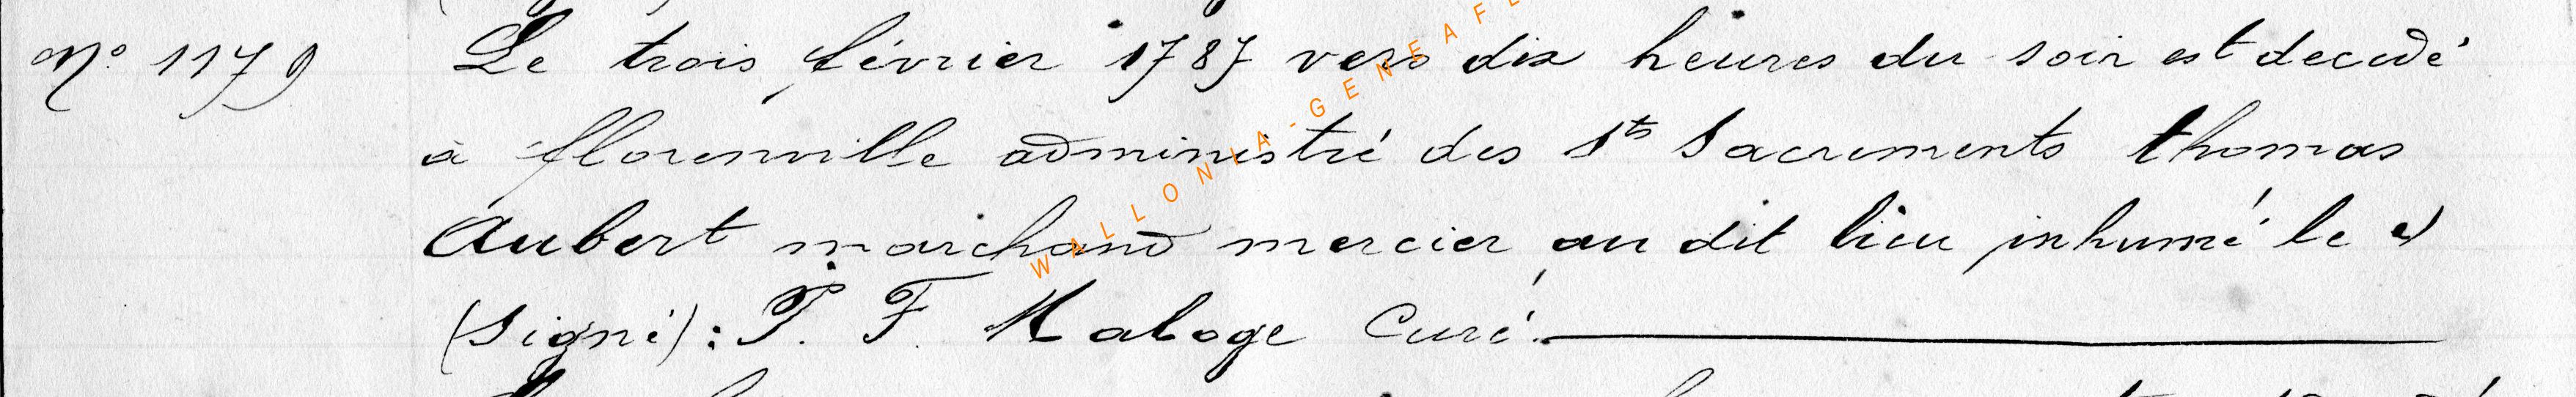 N° 1179 Le trois février 1787 vers dix heures du soir est decedé
à florenville administré des Sts Sacrements thomas
Aubert marchand mercier au dit lieu inhumé le
(signé): J. F. Maloge Curé.
WALLONIA-GENEAFL